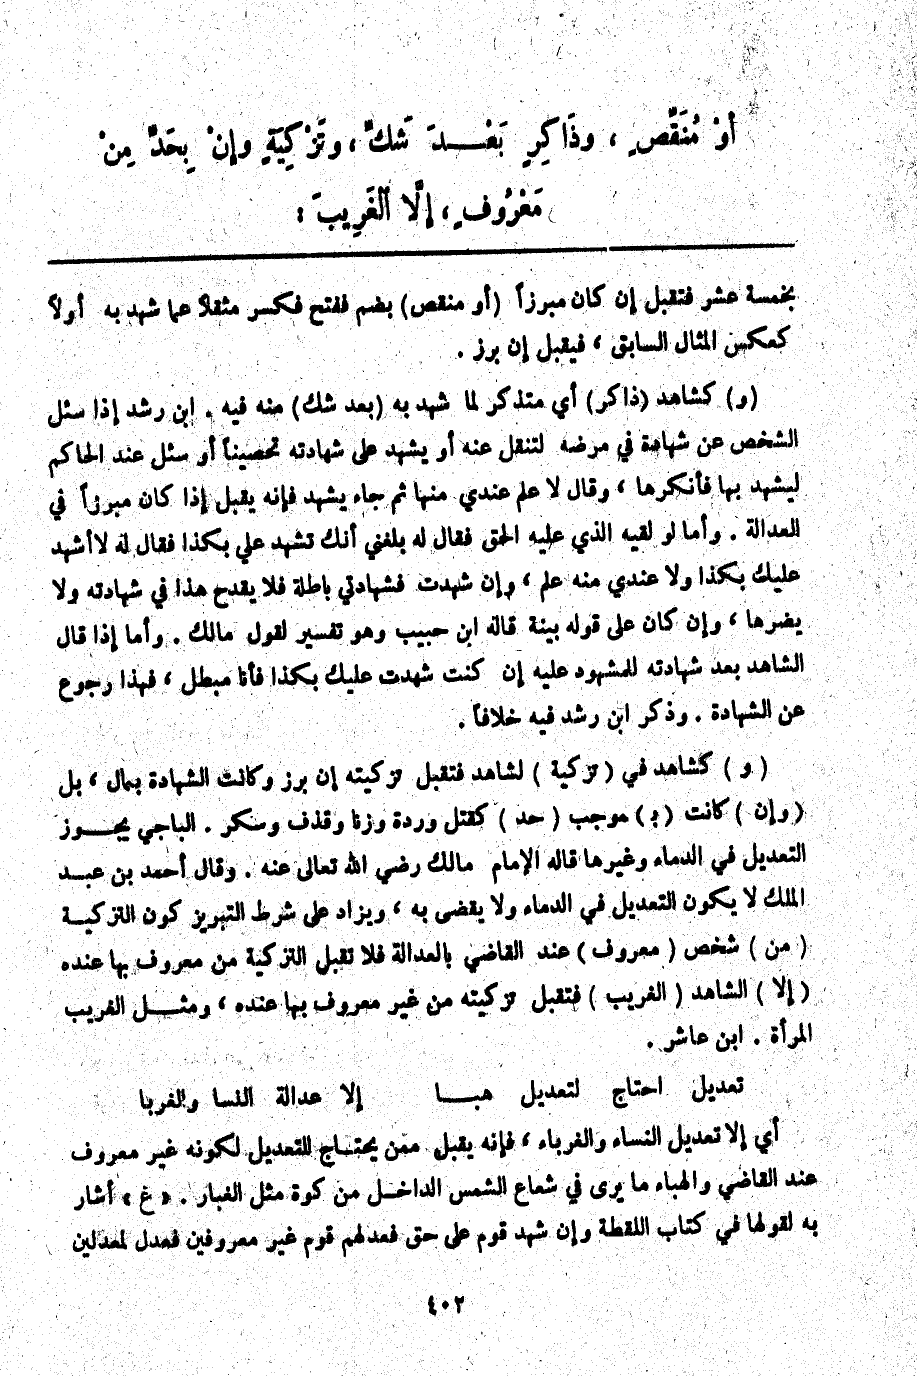 أوْ مُنَقِّصٍ ، وذَاكِرٍ بَعْــدَ شَكٍّ ، وتَزْكِيَةٍ وإنْ بِحَدٍّ مِنْ
مَعْرُوفٍ ، إلَّا ٱلْغَرِيبَ :
بخمسة عشر فتقبل إن كان مبرزاً (أو منقص) بضم ففتح فكسر مثقلاً عما شهد به أولاً
كعكس المثال السابق ، فيقبل إن برز .
(و) كشاهد (ذاكر) أي متذكر لما شهد به (بعد شك) منه فيه . ابن رشد إذا سئل
الشخص عن شهادة في مرضه لتنقل عنه أو يشهد على شهادته تحصيناً أو سئل عند الحاكم
ليشهد بها فأنكرها ، وقال لا علم عندي منها ثم جاء يشهد فإنه يقبل إذا كان مبرزاً في
العدالة . وأما لو لقيه الذي عليه الحق فقال له بلغني أنك تشهد علي بكذا فقال له لا أشهد
عليك بكذا ولا عندي منه علم ، وإن شهدت فشهادتي باطلة فلا يقدح هذا في شهادته ولا
يضرها ، وإن كان على قوله بينة قاله ابن حبيب وهو تفسير لقول مالك . وأما إذا قال
الشاهد بعد شهادته للمشهود عليه إن كنت شهدت عليك بكذا فأنا مبطل ، فهذا رجوع
عن الشهادة . وذكر ابن رشد فيه خلافاً .
( و ) كشاهد في ( تزكية ) لشاهد فتقبل تزكيته إن برز وكانت الشهادة بمال ، بل
( وإن ) كانت ( بـ ) موجب ( حد ) كقتل وردة وزنا وقذف وسكر . الباجي يجــوز
التعديل في الدماء وغيرها قاله الإمام مالك رضي الله تعالى عنه . وقال أحمد بن عبــد
الملك لا يكون التعديل في الدماء ولا يقضى به ، ويزاد على شرط التبريز كون التزكيــة
( من ) شخص ( معروف ) عند القاضي بالعدالة فلا تقبل التزكية من معروف بها عنده
( إلا ) الشاهد ( الغريب ) فتقبل تزكيته من غير معروف بها عنده ، ومثــل الغريب
المرأة . ابن عاشر .
تعديل احتاج لتعديل هبــا إلا عدالة النسا والغربا
أي إلا تعديل النساء والغرباء ، فإنه يقبل ممن يحتــاج للتعديل لكونه غير معروف
عند القاضي والهباء ما يرى في شعاع الشمس الداخــل من كوة مثل الغبار . « غ » أشار
به لقولها في كتاب اللقطة وإن شهد قوم على حق فعدلهم قوم غير معروفين فعدل لمعدلين
٤٠٢